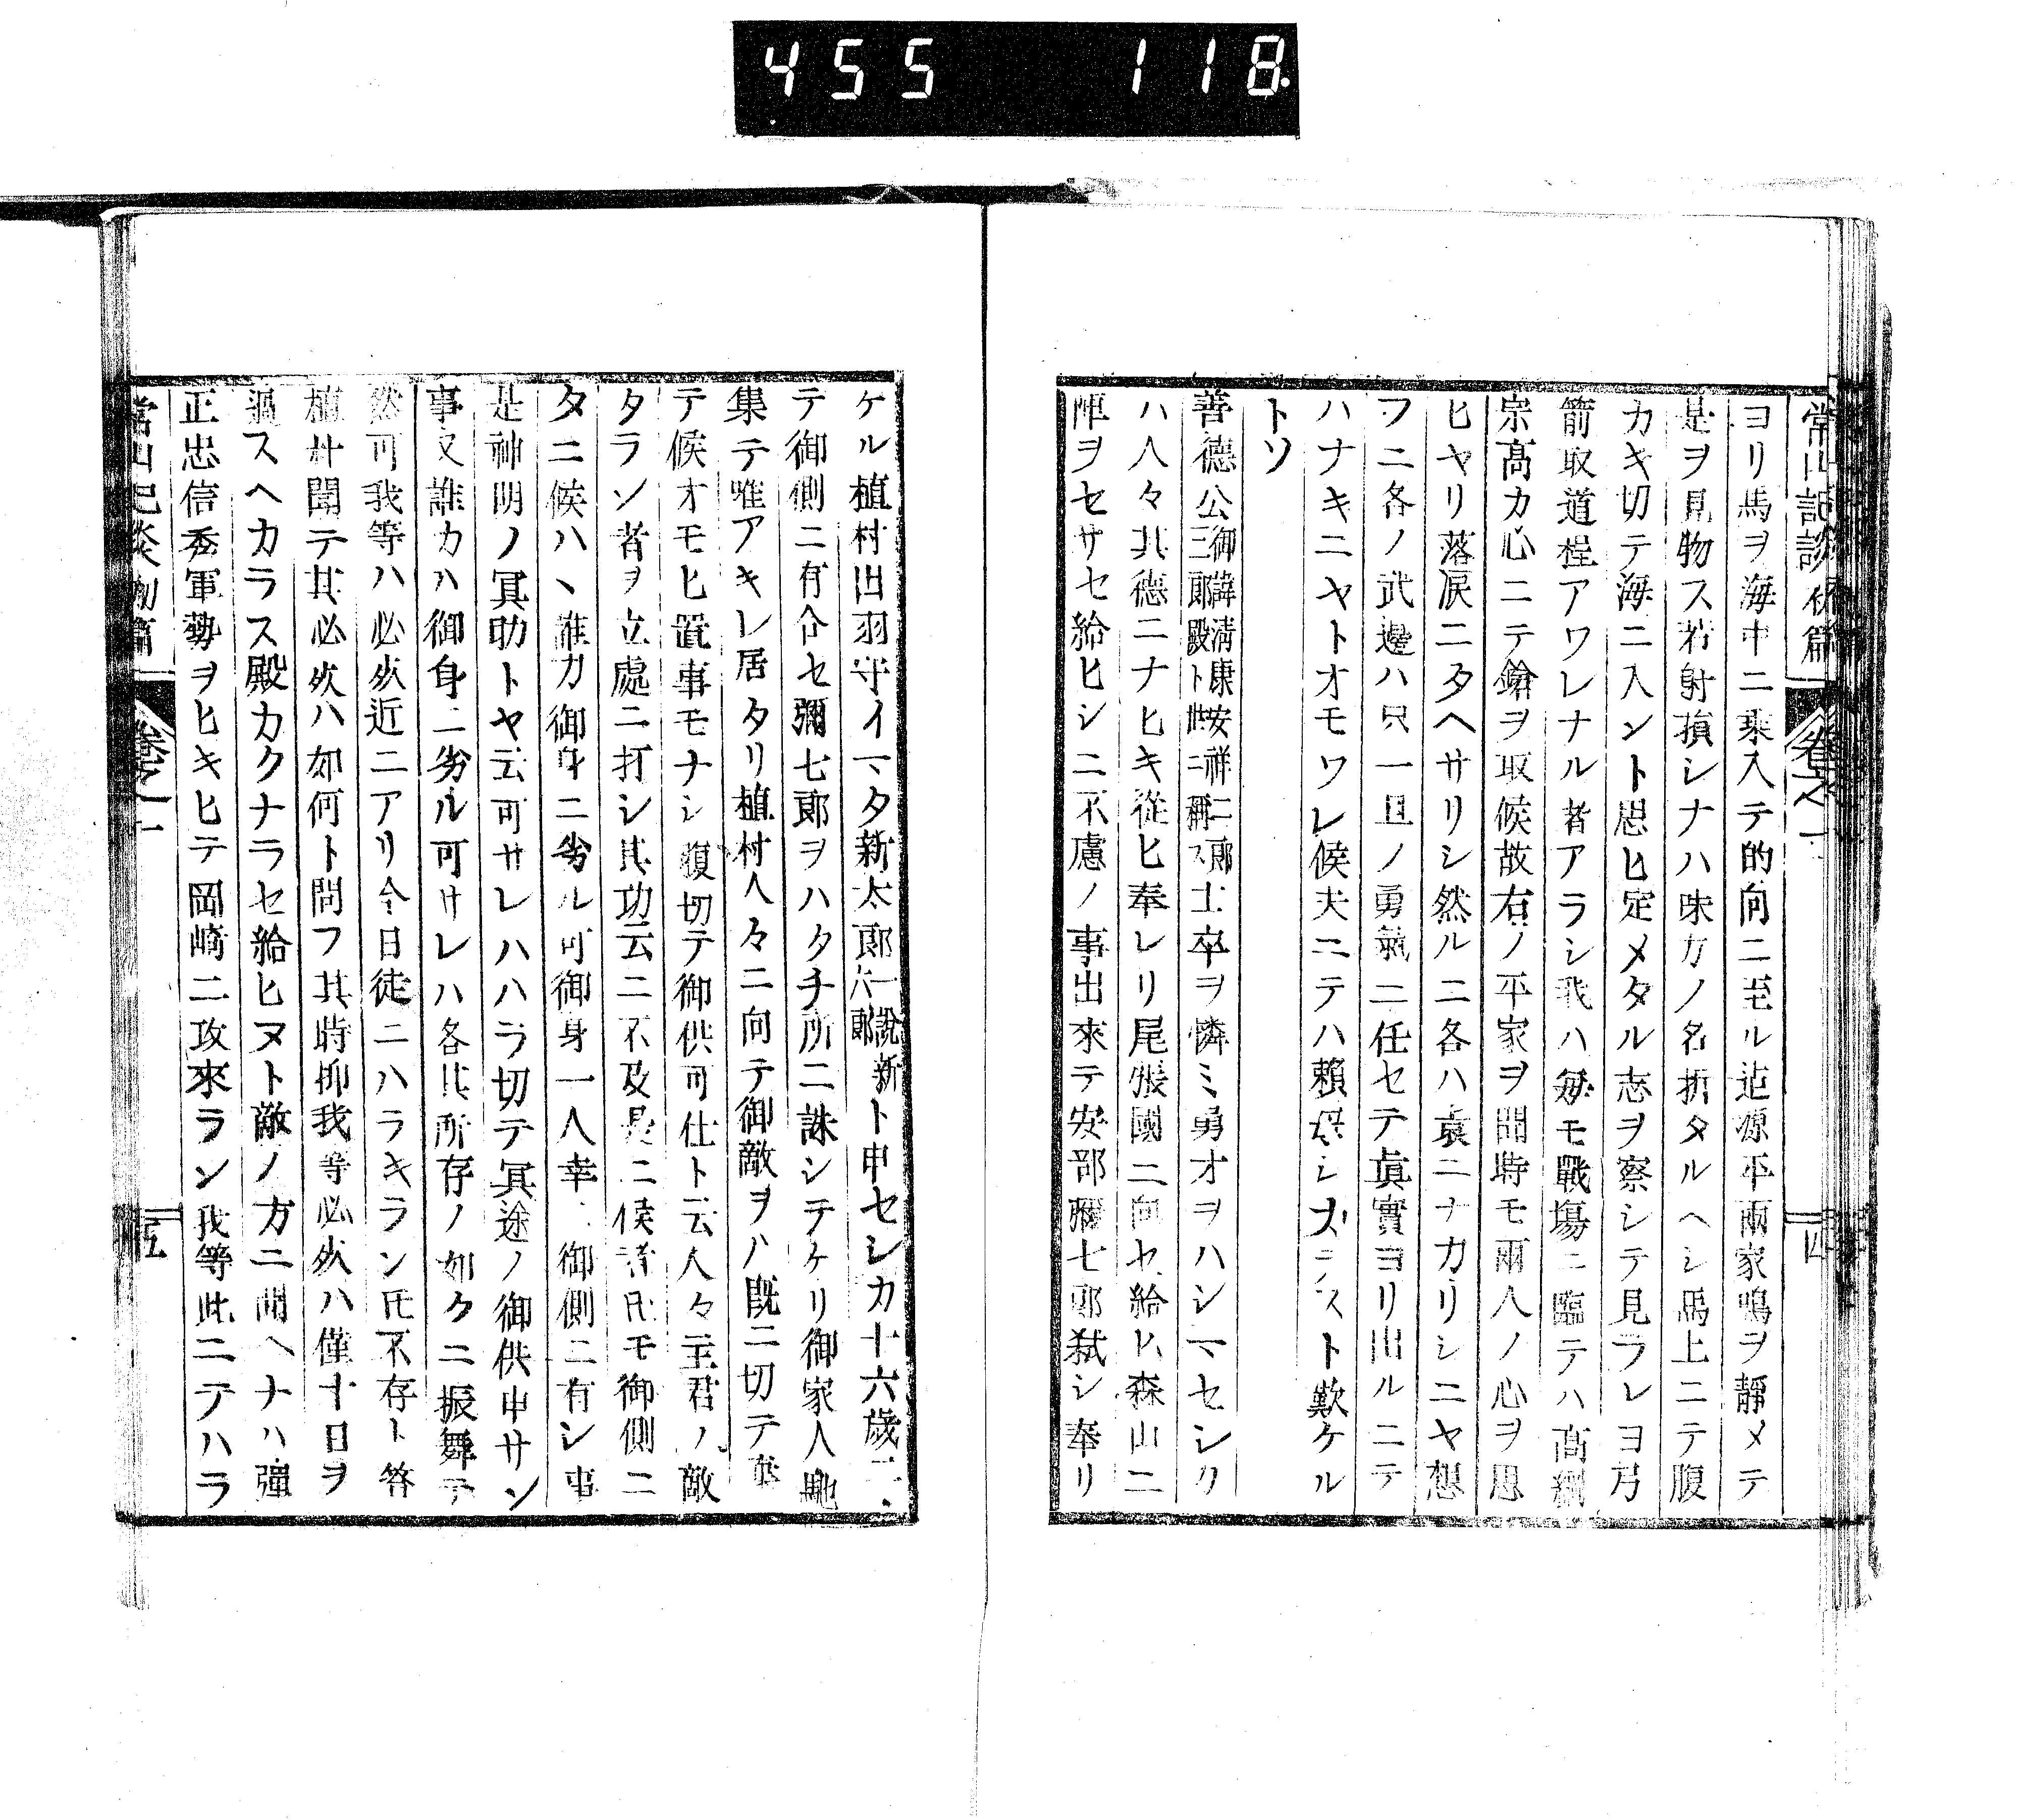 455 118
常山記談初篇 卷之一 四
ヨリ馬ヲ海中ニ乗入テ的向ニ至ル迠源平兩家鳴ヲ靜メテ
是ヲ見物ス若射損シナハ味カノ名折タルヘシ馬上ニテ腹
カキ切テ海ニ入ント思ヒ定メタル志ヲ察シテ見ラレヨ弓
箭取道程アワレナル者アラシ我ハ毎モ戰塲ニ臨テハ髙綱
宗髙カ心ニテ鎗ヲ取候故右ノ平家ヲ聞時モ兩人ノ心ヲ思
ヒヤリ落涙ニタヘサリシ然ルニ各ハ哀ニナカリシニヤ想
フニ各ノ武邊ハ只一旦ノ勇氣ニ任セテ眞實ヨリ出ルニテ
ハナキニヤトオモワレ候夫ニテハ頼母シカラスト歎ケル
トソ
善德公御諱淸康安祥二郎三郎殿ト世ニ稱ス士卒ヲ憐ミ勇オヲハシマセシカ
ハ人々其德ニナヒキ從ヒ奉レリ尾張國ニ向セ給ヒ森山ニ
陣ヲセサセ給ヒシニ不慮ノ事出來テ安部彌七郎弑シ奉リ
ケル植村出羽守イマタ新太郎一說新六郎ト申セシカ十六歲ニ
テ御側ニ有合セ彌七郎ヲハタチ所ニ誅シテケリ御家人馳
集テ唯アキレ居タリ植村人々ニ向テ御敵ヲハ既ニ切テ奉
テ候オモヒ置事モナシ腹切テ御供可仕ト云人々主君ノ敵
タラン者ヲ立處ニ打シ其功云ニ不及是ニ候者𪜈モ御側ニ
タニ候ハヽ誰カ御身ニ劣ル可御身一人幸ニ御側ニ有シ事
是神明ノ冥助トヤ云可サレハハラ切テ冥途ノ御供申サン
事又誰カハ御身ニ劣ル可サレハ各其所存ノ如クニ振舞テ
然可我等ハ必㱁近ニアリ今日徒ニハラキラン𪜈不存ト答
植村聞テ其必㱁ハ如何ト問フ其時抑我等必㱁ハ僅十日ヲ
過スヘカラス殿カクナラセ給ヒヌト敵ノ方ニ聞ヘナハ彈
正忠信秀軍勢ヲヒキヒテ岡崎ニ攻來ラン我等此ニテハラ
常山記談初篇 卷之一 五